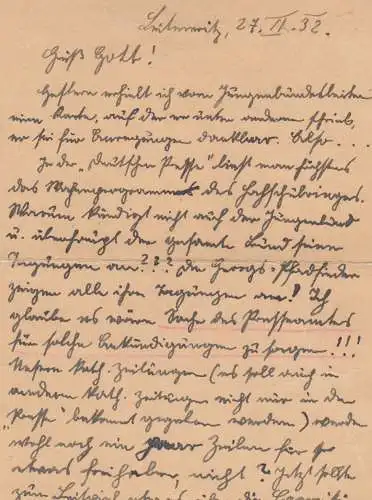 Leitmeritz, 27. II. 32.
Grüß Gott!
Gestern erhielt ich vom Jungenbundesleiter
eine Karte, auf der er unter anderem schrieb,
er sei für Anregungen dankbar. Also...
In der „Deutschen Presse" liest man
das Wochenprogramm des Hochschulringes.
Warum kündigt nicht auch der Jungenbund
u. überhaupt der gesamte Bund seine
Tagungen an??? Die Georgs-Pfadfinder
zeigen alle ihre Tagungen an! Ich
glaube es wäre Sache des Presseamtes
für solche Ankündigungen zu sorgen!!!
Unsere kath. Zeitungen (es soll auch in
anderen kath. Zeitungen nicht nur in der
„Presse" bekannt gegeben werden) werden
wohl noch ein paar Zeilen für so
etwas frei haben, nicht? Jetzt sollte
zum Beispiel etwas über die